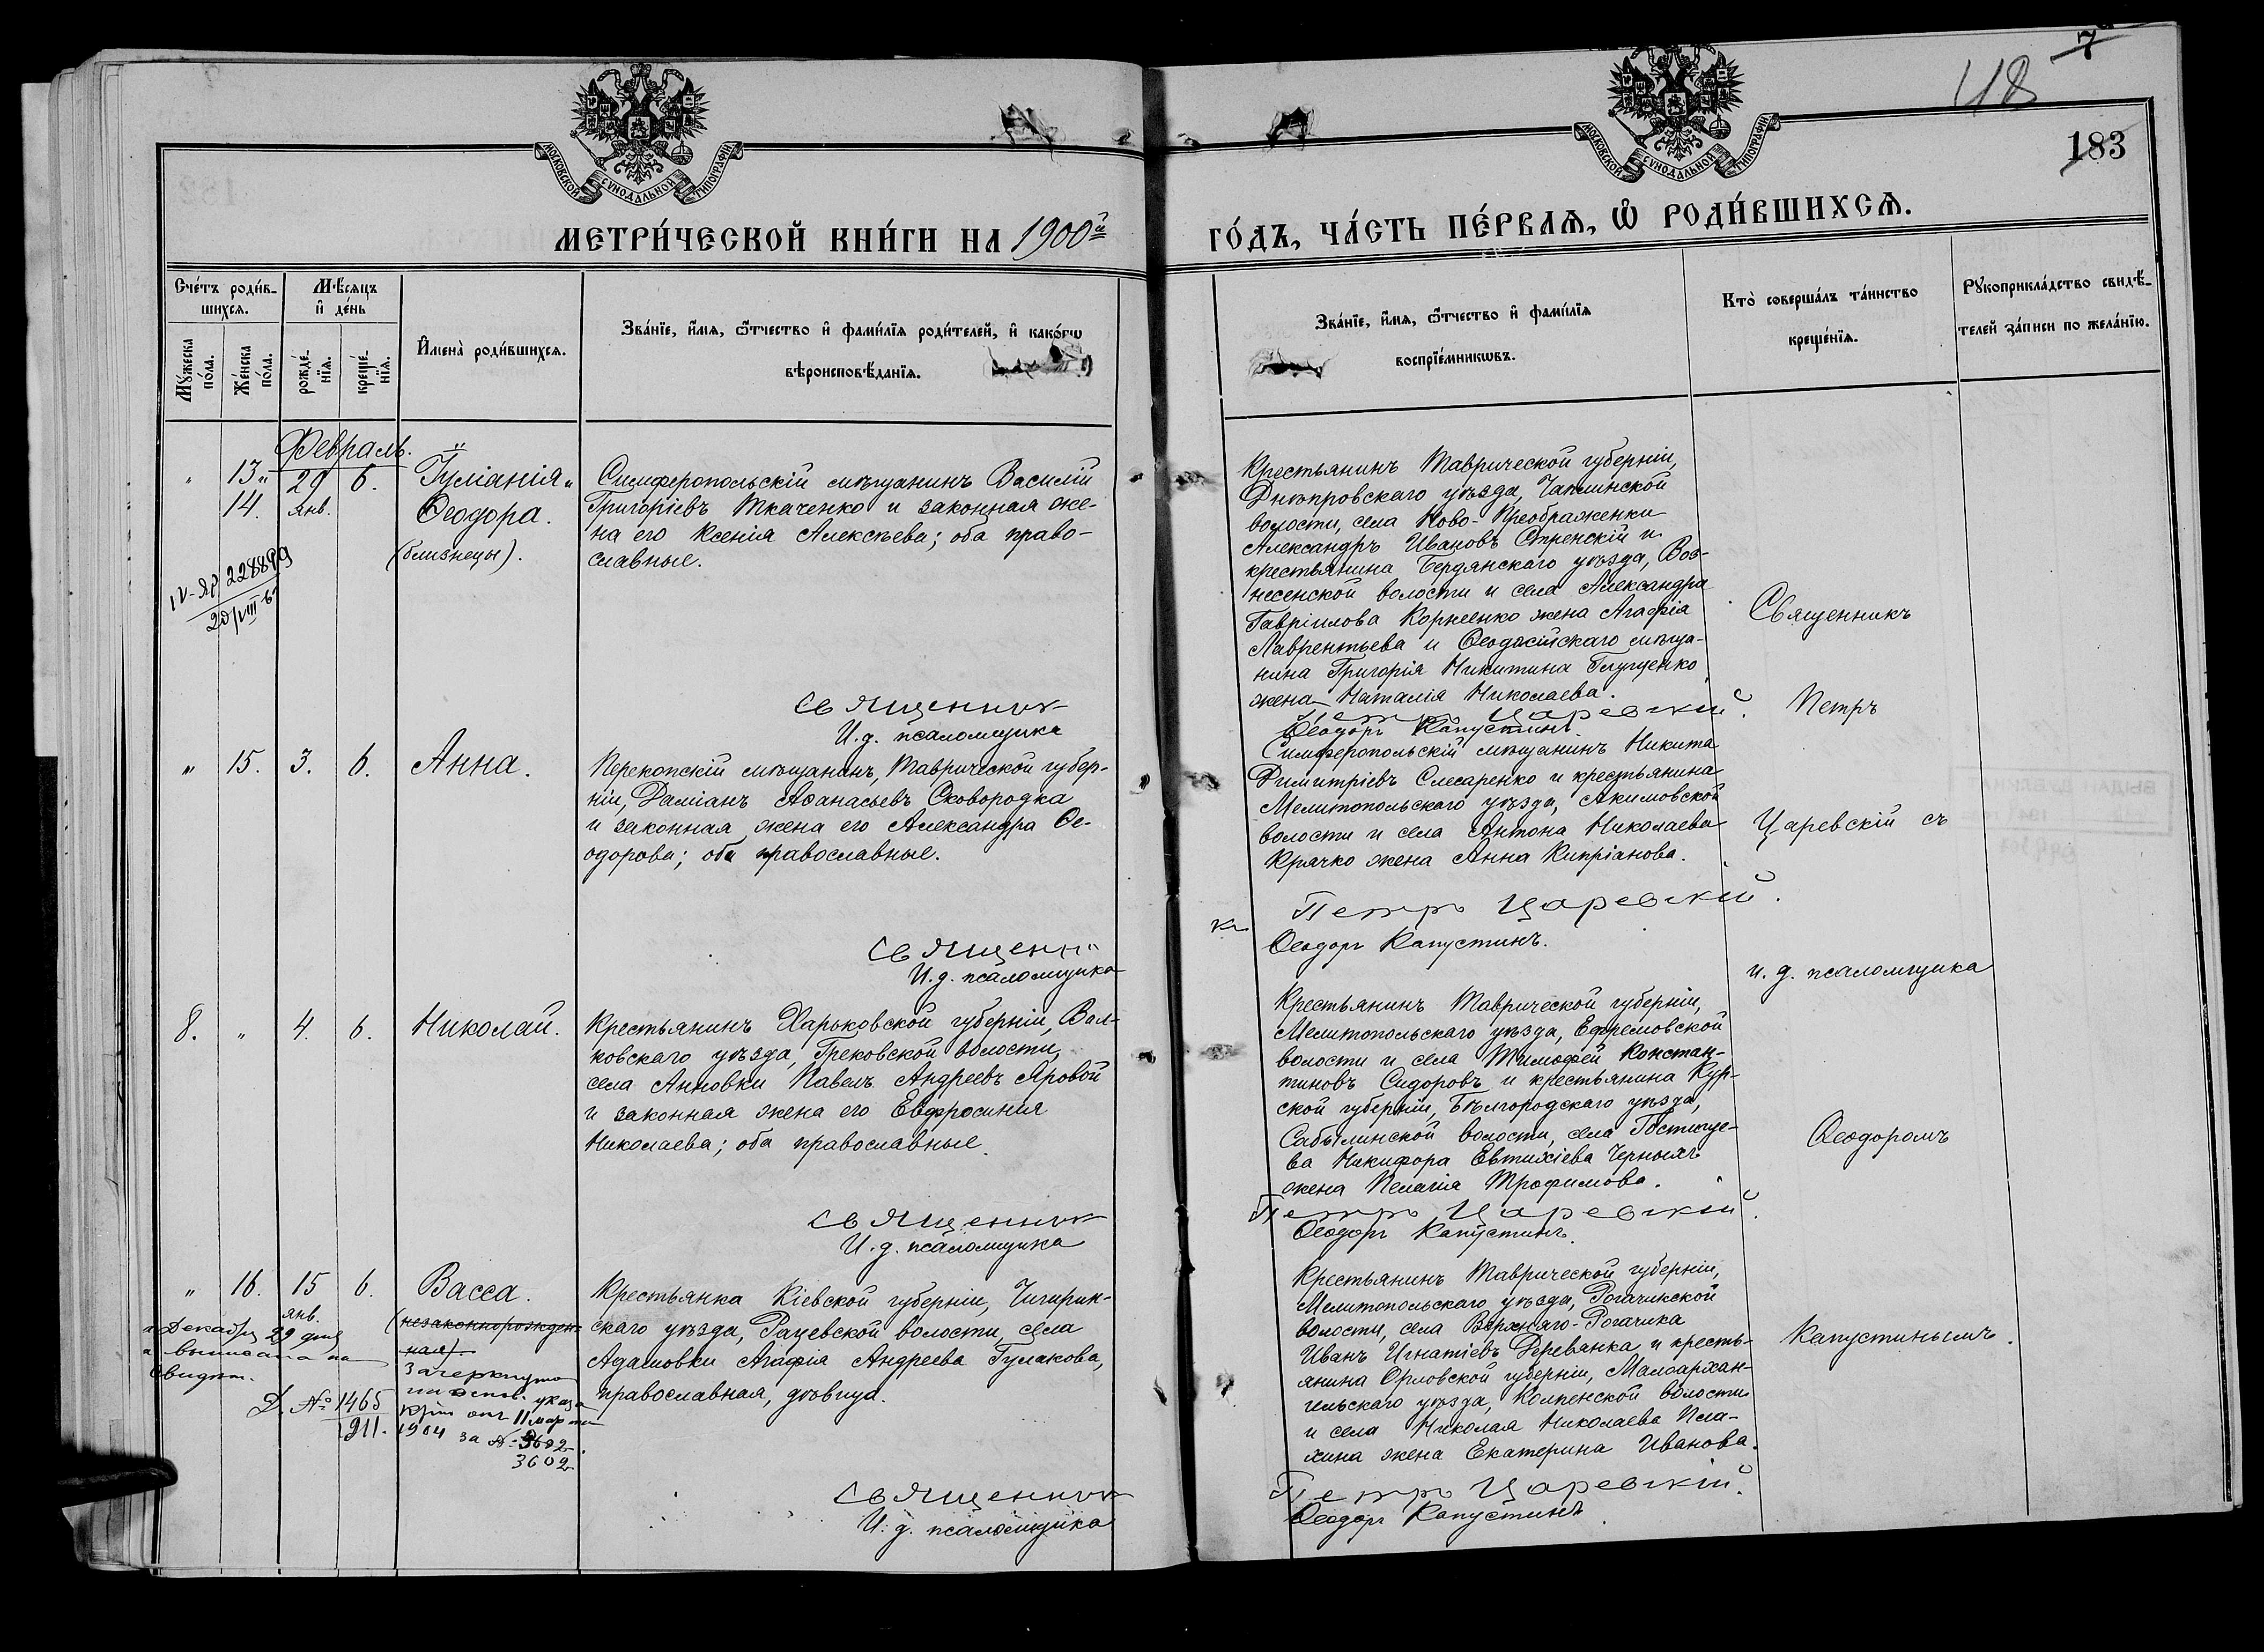 7
48
183
МОСКОВСКОЙ СѴНОДАЛЬНОЙ ТИПОГРАФІИ
МОСКОВСКОЙ СѴНОДАЛЬНОЙ ТИПОГРАФІИ
МЕТРИ́ЧЕСКОЙ КНИ́ГИ НА 1900й
ГО́ДЪ, ЧА́СТЬ ПЕ́РВАѦ, Ѽ РОДИ́ВШИХСѦ.
Сче́тъ роди́в-
шихсѧ.
Мꙋ́жеска по́ла.
Же́нска по́ла.
Мѣ́сѧцъ
и҆ де́нь
рожде́-
нїѧ.
креще́-
нїѧ.
И҆мена̀ роди́вшихсѧ.
Зва́нїе, и҆́мѧ, ѻ҆́тчество и҆ фами́лїѧ роди́телей, и҆ како́гѡ
вѣроисповѣ́данїѧ.
Зва́нїе, и҆́мѧ, ѻ҆́тчество и҆ фами́лїѧ
воспрїе́мникѡвъ.
Кто̀ соверша́лъ та́инство
креще́нїѧ.
Рꙋкоприкла́дство свидѣ́-
телей за́писи по жела́нїю.
Февраль.
" 13 " 29 6. Іуліанія "
14. янв. Ѳеодора.
(близнецы).
228899
Симферопольскій мѣщанинъ Василій
Григоріевъ Ткаченко и законная же-
на его Ксенія Алексѣева; оба право-
славные.
Священник
И.д. псаломщика
Крестьянинъ Таврической губерніи,
Днѣпровскаго уѣзда, Чаплинской
волости, села Ново-Преображенки
Александръ Ивановъ Опренскій и
крестьянина Бердянскаго уѣзда, Воз-
несенской волости и села Александра
Гавріилова Корнеенко жена Агафія
Лаврентьева и Ѳеодосійскаго мѣща-
нина Григорія Никитина Глущенко
жена Наталія Николаева.
Петръ Царевскій.
Ѳеодоръ Капустинъ.
" 15. 3. 6. Анна.
Перекопскій мѣщанинъ, Таврической губер-
ніи, Даміанъ Аѳанасьевъ Сковородка
и законная жена его Александра Ѳе-
одорова; оба православные.
Священни
И.д. псаломщика
Симферопольскій мѣщанинъ Никита
Димитріевъ Слесаренко и крестьянина
Мелитопольскаго уѣзда, Акимовской
волости и села Антона Николаева
Крячко жена Анна Кипріанова.
къ Петръ Царевскій.
Ѳеодоръ Капустинъ.
8. " 4. 6. Николай.
Крестьянинъ Харьковской губерніи, Вал-
ковскаго уѣзда, Грековской волости,
села Анновки Павелъ Андреевъ Яровой
и законная жена его Евфросинія
Николаева; оба православные.
Священник
И.д. псаломщика
Крестьянинъ Таврической губерніи,
Мелитопольскаго уѣзда, Ефремовской
волости и села Тимофей Констан-
тиновъ Сидоровъ и крестьянина Кур-
ской губерніи, Бѣлгородскаго уѣзда,
Сабынинской волости, села Гостище-
ва Никифора Евтихіева Черныхъ
жена Пелагія Трофимова.
Петръ Царевскій.
Ѳеодоръ Капустинъ.
" 16. 15 6. Васса.
янв.
(незаконнорожден-
ная)
Зачеркнуто
на основ. указа
отъ 11 марта
1904 за № 3602.
3602
Декабря 29 дня
выписана
свидѣт.
Д. № 1465
911.
Крестьянка Кіевской губерніи, Чигирин-
скаго уѣзда, Рацевской волости, села
Адамовки Агафія Андреева Гулакова,
православная, дѣвица.
Священник
И.д. псаломщика
Крестьянинъ Таврической губерніи,
Мелитопольскаго уѣзда, Рогачикской
волости, села Верхняго-Рогачика
Иванъ Игнатіевъ Деревянка и кресть-
янина Орловской губерніи, Малоархан-
гельскаго уѣзда, Колпенской волости
и села Николая Николаева Пла-
хина жена Екатерина Иванова.
Петръ Царевскій.
Ѳеодоръ Капустинъ.
Священникъ
Петръ
Царевскій съ
и. д. псаломщика
Ѳеодоромъ
Капустинымъ.